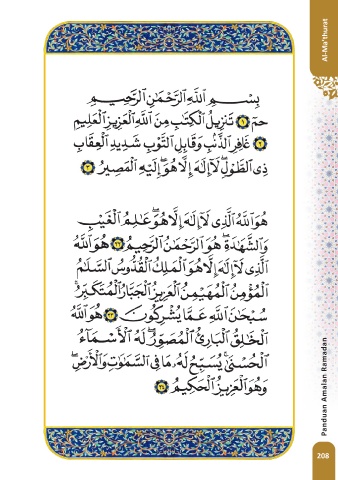 Al-Ma'thurat
بِسْمِ ٱللَّهِ ٱلرَّحْمَٰنِ ٱلرَّحِيمِ
حمٓ ١ تَنزِيلُ ٱلْكِتَٰبِ مِنَ ٱللَّهِ ٱلْعَزِيزِ ٱلْعَلِيمِ
٢ غَافِرِ ٱلذَّنۢبِ وَقَابِلِ ٱلتَّوْبِ شَدِيدِ ٱلْعِقَابِ
ذِى ٱلطَّوْلِ ۖ لَآ إِلَٰهَ إِلَّا هُوَ ۖ إِلَيْهِ ٱلْمَصِيرُ ٣
هُوَ ٱللَّهُ ٱلَّذِى لَآ إِلَٰهَ إِلَّا هُوَ ۖ عَٰلِمُ ٱلْغَيْبِ
وَٱلشَّهَٰدَةِ ۖ هُوَ ٱلرَّحْمَٰنُ ٱلرَّحِيمُ ٢٢ هُوَ ٱللَّهُ
ٱلَّذِى لَآ إِلَٰهَ إِلَّا هُوَ ٱلْمَلِكُ ٱلْقُدُّوسُ ٱلسَّلَٰمُ
ٱلْمُؤْمِنُ ٱلْمُهَيْمِنُ ٱلْعَزِيزُ ٱلْجَبَّارُ ٱلْمُتَكَبِّرُ ۚ
سُبْحَٰنَ ٱللَّهِ عَمَّا يُشْرِكُونَ ٢٣ هُوَ ٱللَّهُ
ٱلْخَٰلِقُ ٱلْبَارِئُ ٱلْمُصَوِّرُ ۖ لَهُ ٱلْأَسْمَآءُ
ٱلْحُسْنَىٰ ۚ يُسَبِّحُ لَهُۥ مَا فِى ٱلسَّمَٰوَٰتِ وَٱلْأَرْضِ ۖ
وَهُوَ ٱلْعَزِيزُ ٱلْحَكِيمُ ٢٤
Panduan Amalan Ramadan
208